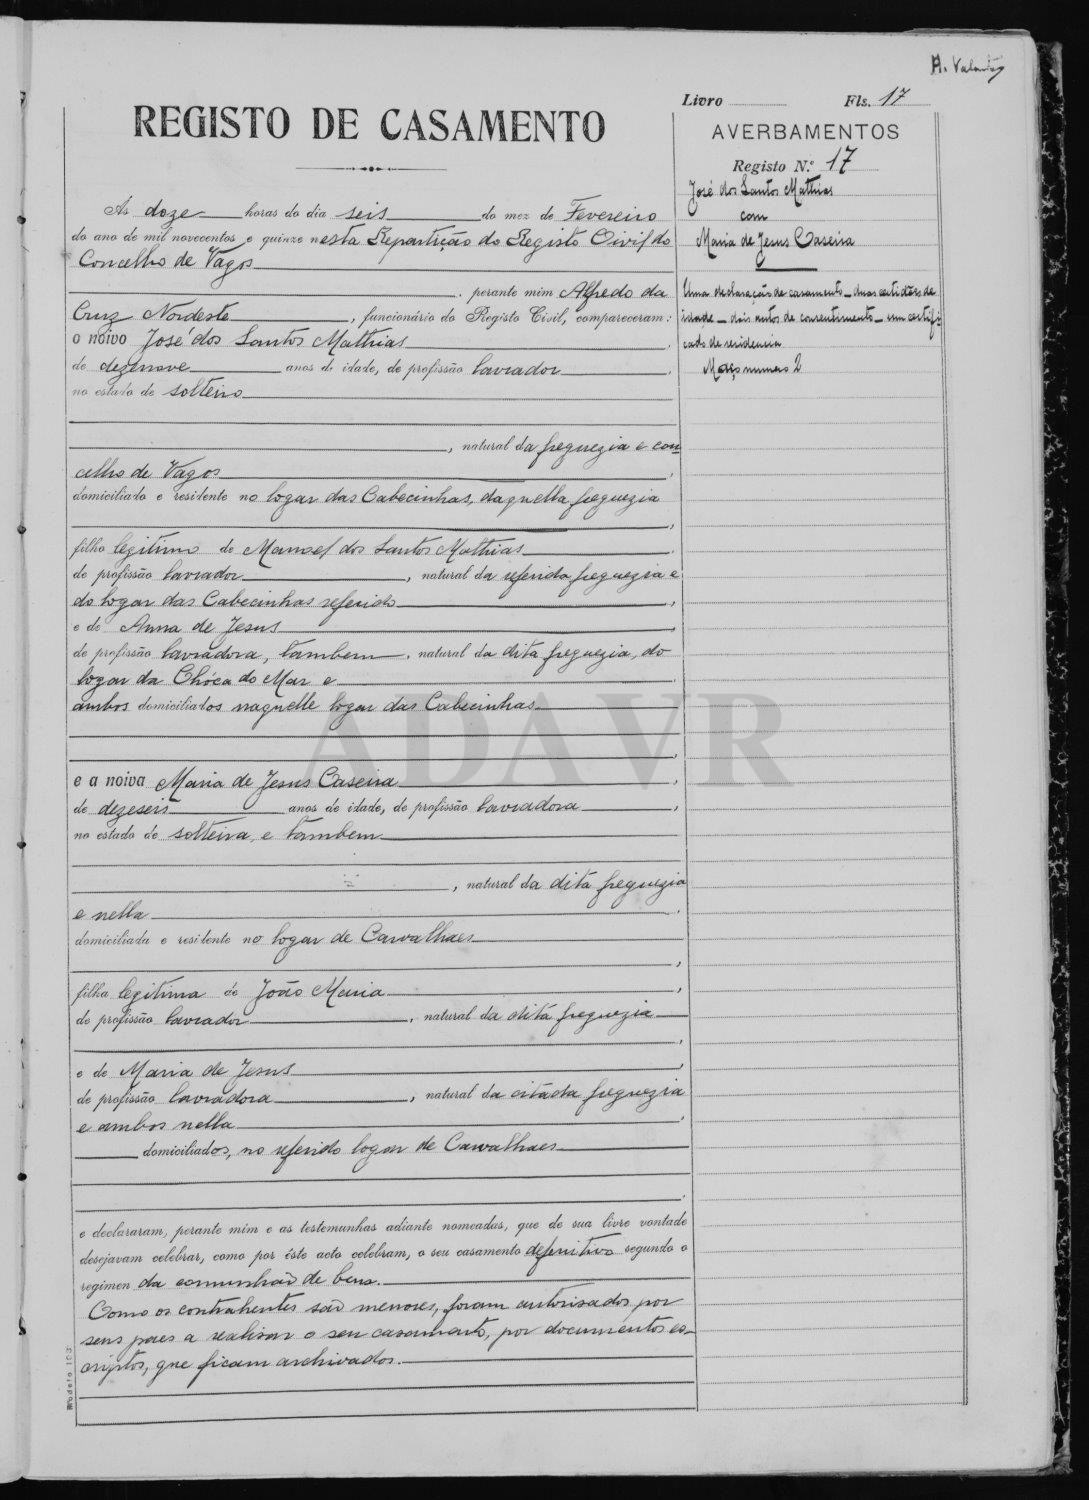 Livro Fls. 17
REGISTO DE CASAMENTO
AVERBAMENTOS
Registo N.º 17
José dos Santos Mathias
com
Maria de Jesus Caseira
Uma declaração de casamento - duas certidões de
idade - dois autos de consentimento - um certifi-
cado de residencia
Maço numero 2
Ás doze horas do dia seis do mez de Fevereiro
do ano de mil novecentos e quinze nesta Repartição do Registo Civil do
Concelho de Vagos
, perante mim Alfredo da
Cruz Nordeste, funcionário do Registo Civil, compareceram:
o noivo José dos Santos Mathias,
de dezenove anos de idade, de profissão lavrador,
no estado de solteiro
, natural da freguezia e con-
celho de Vagos,
domiciliado e residente no logar das Cabecinhas, daquella freguezia
,
filho legitimo de Manoel dos Santos Mathias,
de profissão lavrador, natural da referida freguezia e
do logar das Cabecinhas referido,
e de Anna de Jesus,
de profissão lavradora, tambem, natural da dita freguezia, do
logar da Chóca do Mar e
ambos domiciliados naquelle logar das Cabecinhas
,
e a noiva Maria de Jesus Caseira,
de dezeseis anos de idade, de profissão lavradora,
no estado de solteira, e tambem
, natural da dita freguezia
e nella,
domiciliada e residente no logar de Carvalhaes
,
filha legitima de João Maria,
de profissão lavrador, natural da dita freguezia
,
e de Maria de Jesus,
de profissão lavradora, natural da citada freguezia
e ambos nella,
domiciliados, no referido logar de Carvalhaes
.
e declararam, perante mim e as testemunhas adiante nomeadas, que de sua livre vontade
desejavam celebrar, como por éste acto celebram, o seu casamento definitivo segundo o
regimen da comunhão de bens.
Como os contrahentes são menores, foram autorisados por
seus paes a realisar o seu casamento, por documentos es-
criptos, que ficam archivados.
Modelo 103
ADAVR